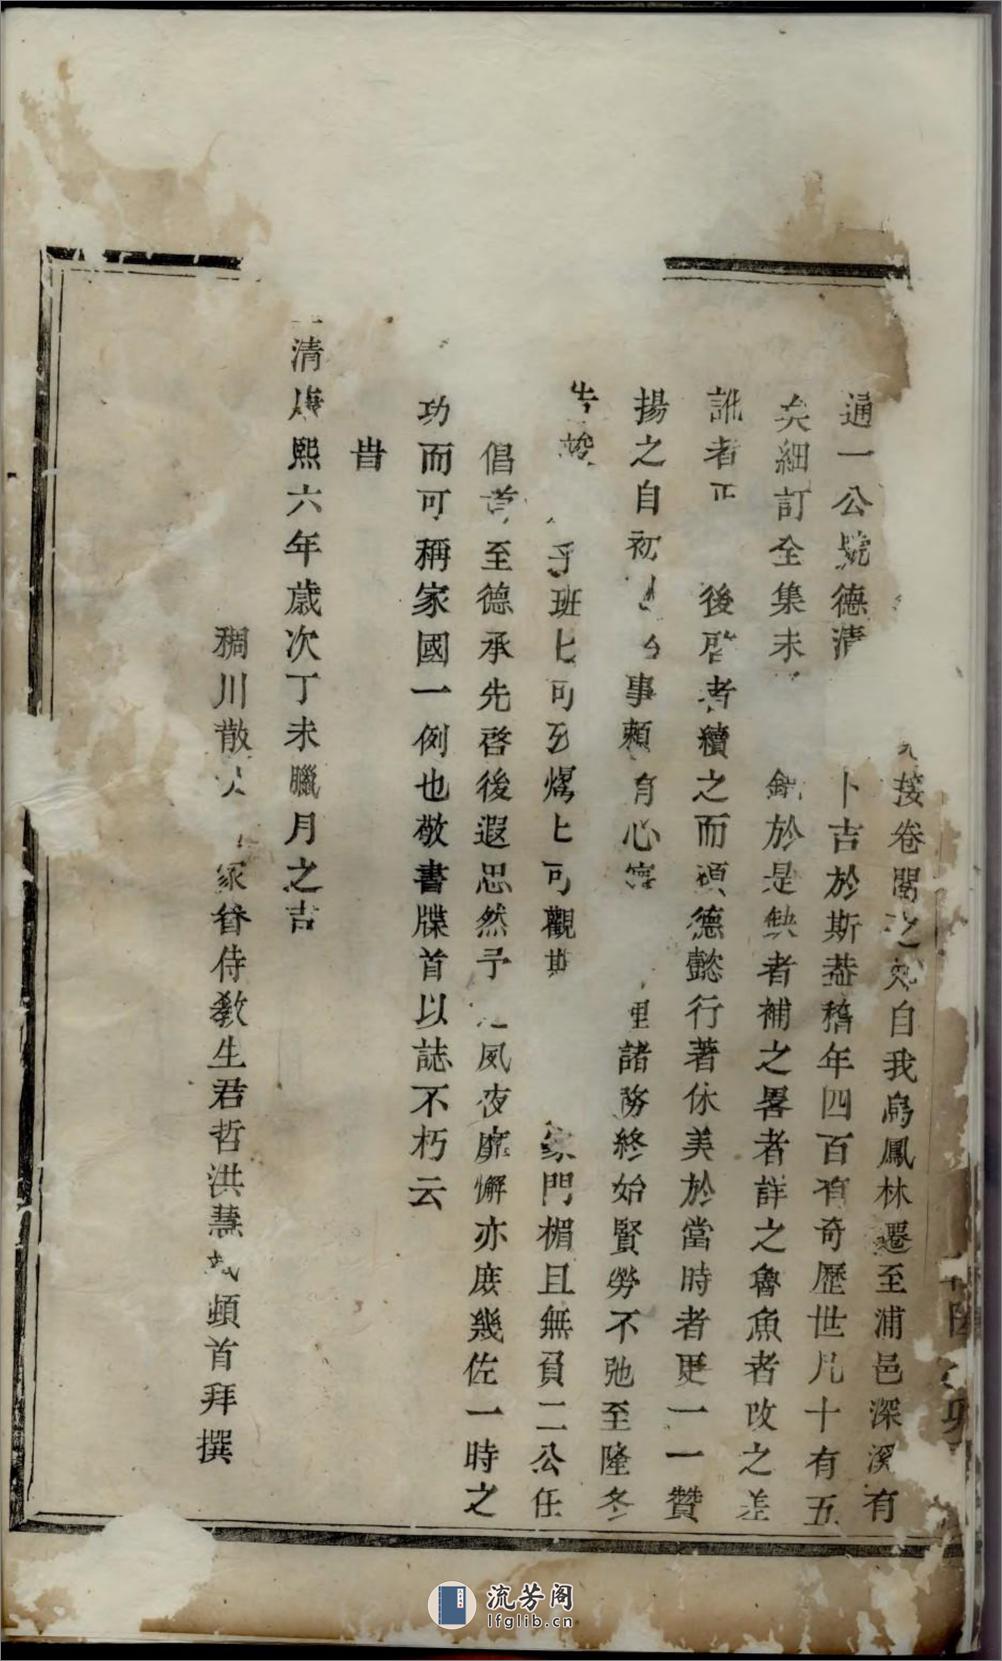 接卷閱之知自我烏鳳林遷至浦邑深溪有
通一公號德清卜吉於斯葢稽年四百有奇歷世凡十有五
矣細訂全集未於是缺者補之畧者詳之魯魚者改之差
訛者正後啓者續之而碩德懿行著休美於當時者更一一贊
揚之自初事賴有心諸務終始賢勞不弛至隆冬
告竣乎班七可至燿七可觀斯家門楣且無負二公任
倡首至德承先啓後遐思然予夙夜靡懈亦庶幾佐一時之
功而可稱家國一例也敬書牒首以誌不朽云
旹
清康熙六年歲次丁未臘月之吉
稠川散人家眷侍教生君哲洪慧成頓首拜撰
流芳阁
lfglib.cn